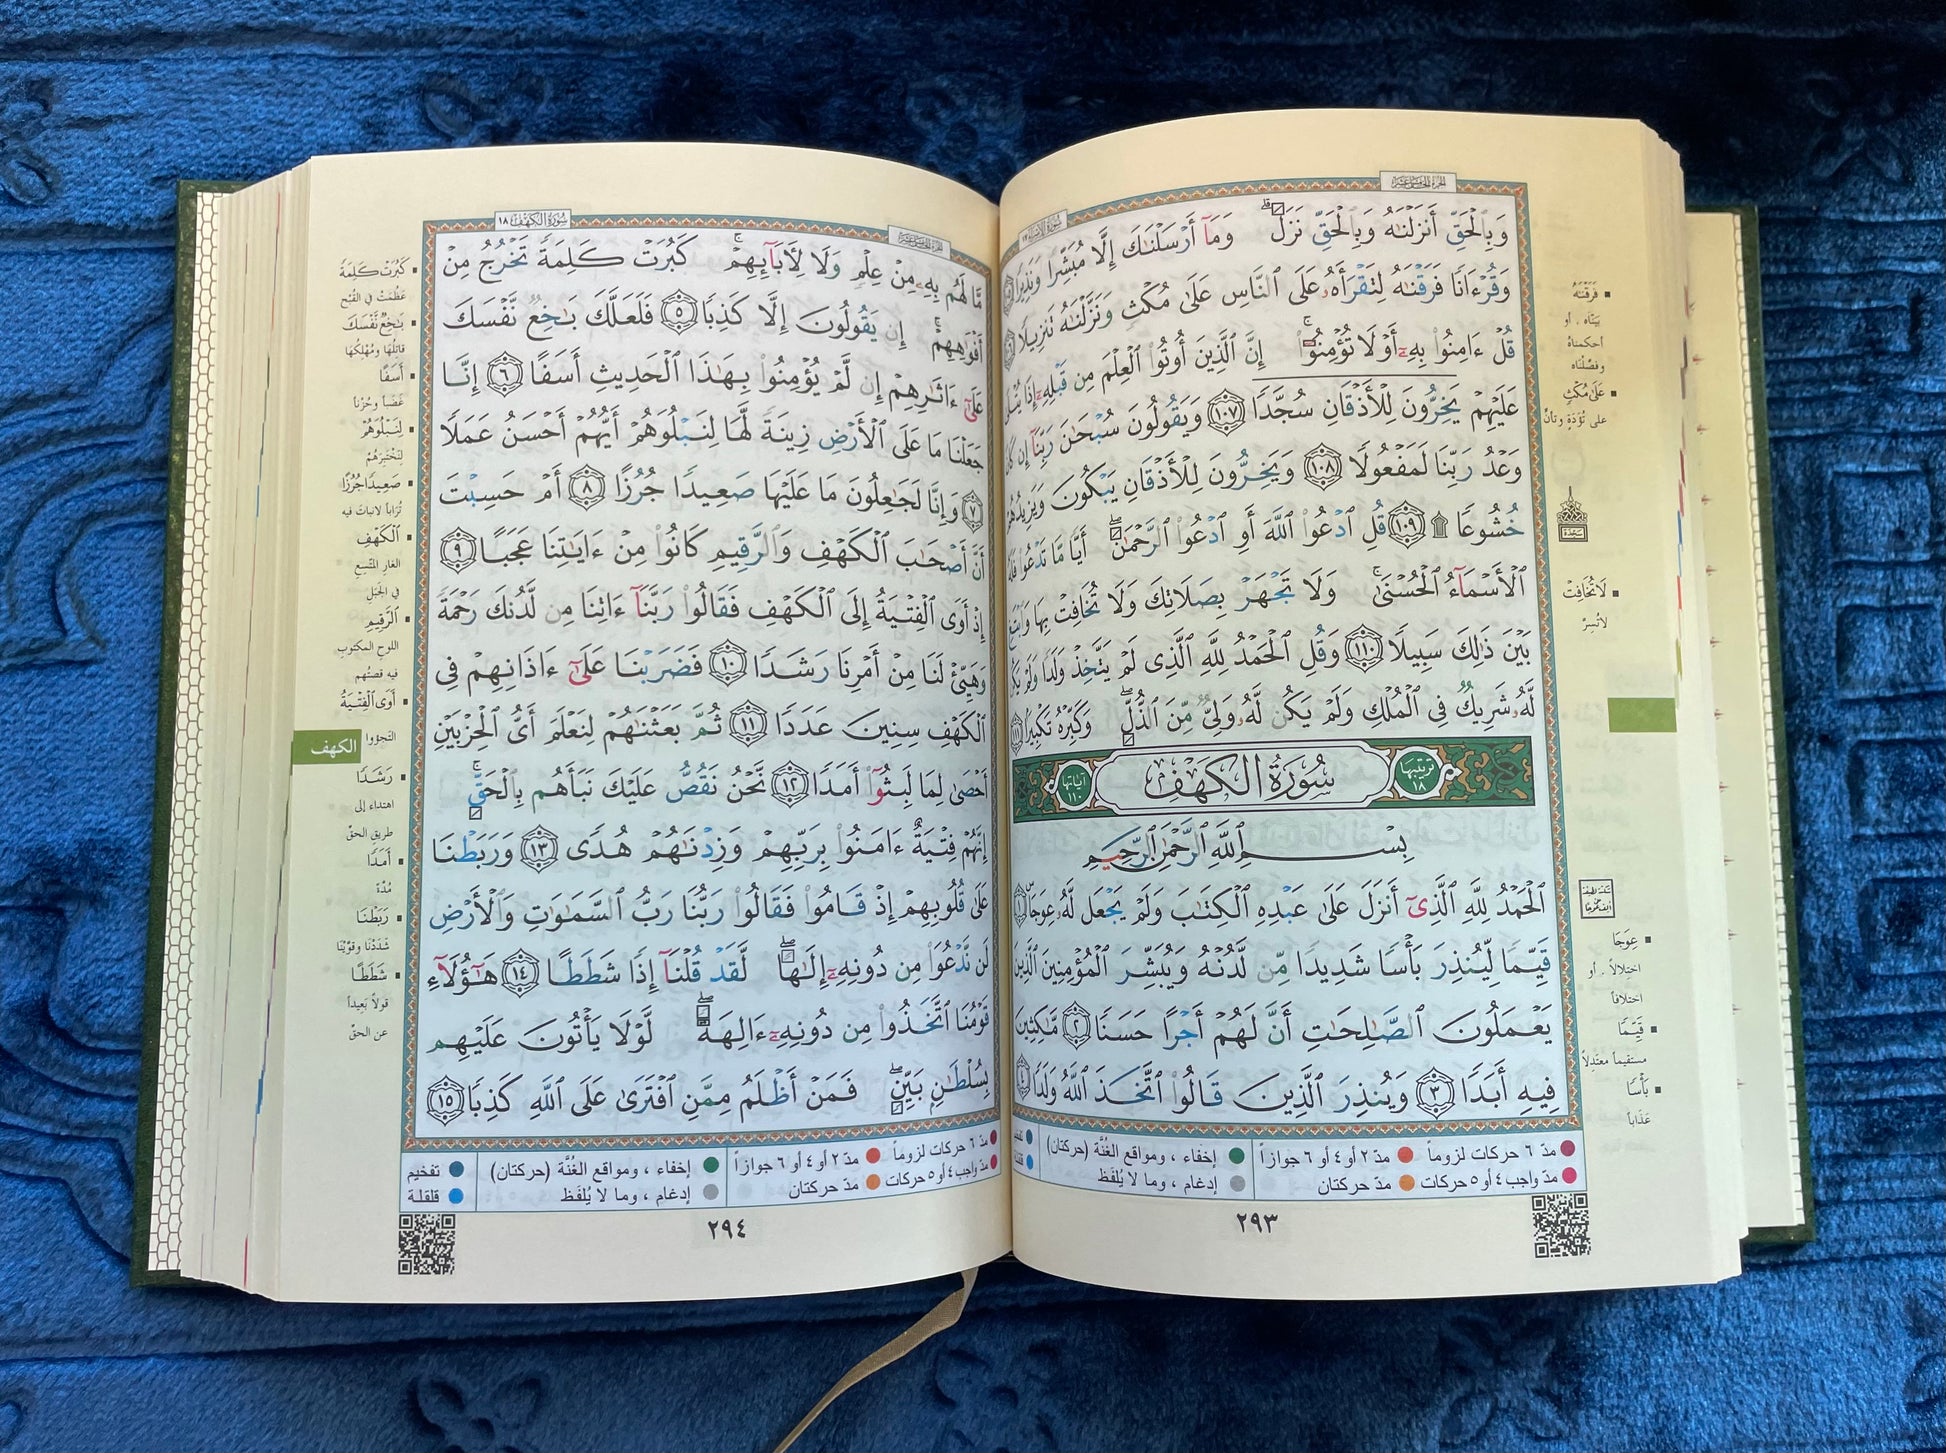 الجزء الخامس عشر
سورة الإسراء ١٧
وَبِٱلْحَقِّ أَنزَلْنَٰهُ وَبِٱلْحَقِّ نَزَلَ ۗ وَمَآ أَرْسَلْنَٰكَ إِلَّا مُبَشِّرًا وَنَذِيرًا
وَقُرْءَانًا فَرَقْنَٰهُ لِتَقْرَأَهُۥ عَلَى ٱلنَّاسِ عَلَىٰ مُكْثٍ وَنَزَّلْنَٰهُ تَنزِيلًا
قُلْ ءَامِنُوا۟ بِهِۦٓ أَوْ لَا تُؤْمِنُوٓا۟ ۚ إِنَّ ٱلَّذِينَ أُوتُوا۟ ٱلْعِلْمَ مِن قَبْلِهِۦٓ إِذَا يُتْلَىٰ
عَلَيْهِمْ يَخِرُّونَ لِلْأَذْقَانِ سُجَّدًا ١٠٧ وَيَقُولُونَ سُبْحَٰنَ رَبِّنَآ إِن كَانَ
وَعْدُ رَبِّنَا لَمَفْعُولًا ١٠٨ وَيَخِرُّونَ لِلْأَذْقَانِ يَبْكُونَ وَيَزِيدُهُمْ
خُشُوعًا ۩ ١٠٩ قُلِ ٱدْعُوا۟ ٱللَّهَ أَوِ ٱدْعُوا۟ ٱلرَّحْمَٰنَ ۖ أَيًّا مَّا تَدْعُوا۟ فَلَهُ
ٱلْأَسْمَآءُ ٱلْحُسْنَىٰ ۚ وَلَا تَجْهَرْ بِصَلَاتِكَ وَلَا تُخَافِتْ بِهَا وَٱبْتَغِ
بَيْنَ ذَٰلِكَ سَبِيلًا ١١٠ وَقُلِ ٱلْحَمْدُ لِلَّهِ ٱلَّذِى لَمْ يَتَّخِذْ وَلَدًا وَلَمْ يَكُن
لَّهُۥ شَرِيكٌ فِى ٱلْمُلْكِ وَلَمْ يَكُن لَّهُۥ وَلِىٌّ مِّنَ ٱلذُّلِّ ۖ وَكَبِّرْهُ تَكْبِيرًا ١١١
ترتيبها ١٨ سُورَةُ الكَهْفِ آياتها ١١٠
بِسْمِ ٱللَّهِ ٱلرَّحْمَٰنِ ٱلرَّحِيمِ
ٱلْحَمْدُ لِلَّهِ ٱلَّذِىٓ أَنزَلَ عَلَىٰ عَبْدِهِ ٱلْكِتَٰبَ وَلَمْ يَجْعَل لَّهُۥ عِوَجَا ۜ ١
قَيِّمًا لِّيُنذِرَ بَأْسًا شَدِيدًا مِّن لَّدُنْهُ وَيُبَشِّرَ ٱلْمُؤْمِنِينَ ٱلَّذِينَ
يَعْمَلُونَ ٱلصَّٰلِحَٰتِ أَنَّ لَهُمْ أَجْرًا حَسَنًا ٢ مَّٰكِثِينَ
فِيهِ أَبَدًا ٣ وَيُنذِرَ ٱلَّذِينَ قَالُوا۟ ٱتَّخَذَ ٱللَّهُ وَلَدًا ٤
فَرَقْنَٰهُ
بيّنّاه . أو
أحكمناهُ
وفصّلناه
عَلَىٰ مُكْثٍ
على تُؤَدَةٍ وتأنٍّ
سجدة
لَا تُخَافِتْ
لا تُسِرَّ
عِوَجَا
اختلالاً . أو
اختلافاً
قَيِّمًا
مستقيماً معتدلاً
بَأْسًا
عَذاباً
مدّ ٦ حركات لزوماً
مدّ ٢ أو ٤ أو ٦ جوازاً
إخفاء ، ومواقع الغُنَّة (حركتان)
مدّ واجب ٤ أو ٥ حركات
مدّ حركتان
إدغام ، وما لا يُلفَظ
٢٩٣
الجزء الخامس عشر
سورة الكهف ١٨
مَّا لَهُم بِهِۦ مِنْ عِلْمٍ وَلَا لِأَبَآئِهِمْ ۚ كَبُرَتْ كَلِمَةً تَخْرُجُ مِنْ
أَفْوَٰهِهِمْ ۚ إِن يَقُولُونَ إِلَّا كَذِبًا ٥ فَلَعَلَّكَ بَٰخِعٌ نَّفْسَكَ
عَلَىٰٓ ءَاثَٰرِهِمْ إِن لَّمْ يُؤْمِنُوا۟ بِهَٰذَا ٱلْحَدِيثِ أَسَفًا ٦ إِنَّا
جَعَلْنَا مَا عَلَى ٱلْأَرْضِ زِينَةً لَّهَا لِنَبْلُوَهُمْ أَيُّهُمْ أَحْسَنُ عَمَلًا
٧ وَإِنَّا لَجَٰعِلُونَ مَا عَلَيْهَا صَعِيدًا جُرُزًا ٨ أَمْ حَسِبْتَ
أَنَّ أَصْحَٰبَ ٱلْكَهْفِ وَٱلرَّقِيمِ كَانُوا۟ مِنْ ءَايَٰتِنَا عَجَبًا ٩
إِذْ أَوَى ٱلْفِتْيَةُ إِلَى ٱلْكَهْفِ فَقَالُوا۟ رَبَّنَآ ءَاتِنَا مِن لَّدُنكَ رَحْمَةً
وَهَيِّئْ لَنَا مِنْ أَمْرِنَا رَشَدًا ١٠ فَضَرَبْنَا عَلَىٰٓ ءَاذَانِهِمْ فِى
ٱلْكَهْفِ سِنِينَ عَدَدًا ١١ ثُمَّ بَعَثْنَٰهُمْ لِنَعْلَمَ أَىُّ ٱلْحِزْبَيْنِ
أَحْصَىٰ لِمَا لَبِثُوٓا۟ أَمَدًا ١٢ نَّحْنُ نَقُصُّ عَلَيْكَ نَبَأَهُم بِٱلْحَقِّ ۚ
إِنَّهُمْ فِتْيَةٌ ءَامَنُوا۟ بِرَبِّهِمْ وَزِدْنَٰهُمْ هُدًى ١٣ وَرَبَطْنَا
عَلَىٰ قُلُوبِهِمْ إِذْ قَامُوا۟ فَقَالُوا۟ رَبُّنَا رَبُّ ٱلسَّمَٰوَٰتِ وَٱلْأَرْضِ
لَن نَّدْعُوَا۟ مِن دُونِهِۦٓ إِلَٰهًا ۖ لَّقَدْ قُلْنَآ إِذًا شَطَطًا ١٤ هَٰٓؤُلَآءِ
قَوْمُنَا ٱتَّخَذُوا۟ مِن دُونِهِۦٓ ءَالِهَةً ۖ لَّوْلَا يَأْتُونَ عَلَيْهِم
بِسُلْطَٰنٍۭ بَيِّنٍ ۖ فَمَنْ أَظْلَمُ مِمَّنِ ٱفْتَرَىٰ عَلَى ٱللَّهِ كَذِبًا ١٥
كَبُرَتْ كَلِمَةً
عَظُمَتْ في القُبْح
بَٰخِعٌ نَّفْسَكَ
قاتلُها ومُهْلِكُها
أَسَفًا
غضَباً وحُزْناً
لِنَبْلُوَهُمْ
لنَختبرَهُمْ
صَعِيدًا جُرُزًا
تُرَاباً لا نباتَ فيه
ٱلْكَهْفِ
الغارِ المتّسعِ
في الجبَلِ
ٱلرَّقِيمِ
اللوحِ المكتوبِ
فيه قصتُهم
أَوَى ٱلْفِتْيَةُ
التجؤوا
الكهف
رَشَدًا
اهتداء إلى
طريق الحقّ
أَمَدًا
مُدّةً
رَبَطْنَا
شدَدْنا وقوَّيْنا
شَطَطًا
قولاً بَعِيداً
عن الحقّ
مدّ ٦ حركات لزوماً
مدّ ٢ أو ٤ أو ٦ جوازاً
إخفاء ، ومواقع الغُنَّة (حركتان)
تفخيم
مدّ واجب ٤ أو ٥ حركات
مدّ حركتان
إدغام ، وما لا يُلفَظ
قلقلة
٢٩٤